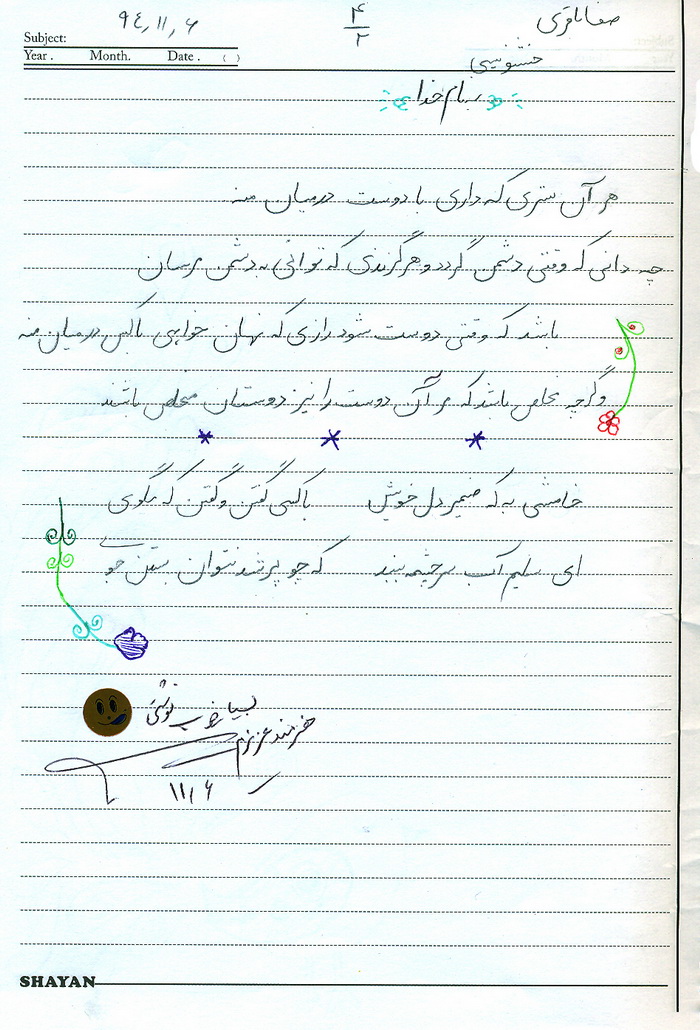 صفا باقری
۴/۲
۹۴,۱۱,۶
Subject:
Year . Month. Date . ( )
خوشنویسی
بنام خدا
هر آن سری که داری با دوست درمیان منه
چه دانی که وقتی دشمن گردد و هر گزندی که توانی به دشمن مرسان
باشد که وقتی دوست شود رازی که نهان خواهی باکس درمیان منه
وگرچه مخلص باشد که مر آن دوست را نیز دوستان مخلص باشند
خامشی به که ضمیر دل خویش باکسی گفتن و گفتن که مگوی
ای سلیم آب سرچشمه ببند که چو پر شد نتوان بستن جوی
بسیار خوب نوشتی
هنرمند عزیزم
۱۱,۶
SHAYAN